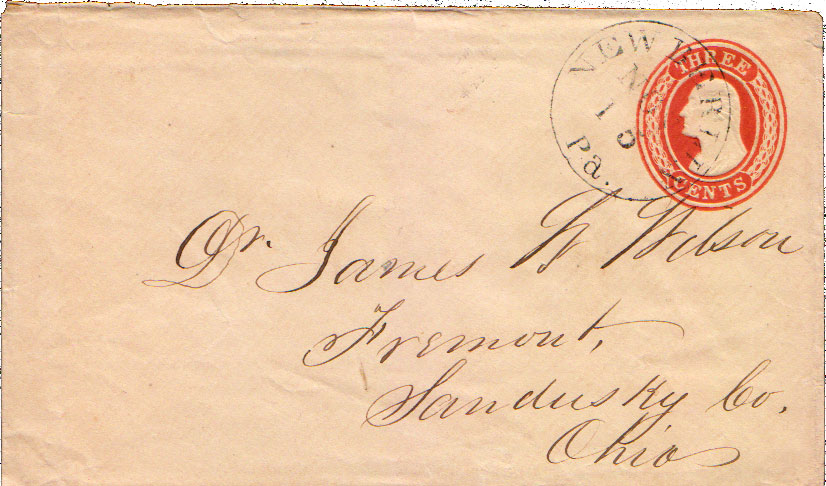 NEW BERLIN
15
Pa.
THREE
CENTS
Dr. James W Wilson
Fremont,
Sandusky Co,
Ohio